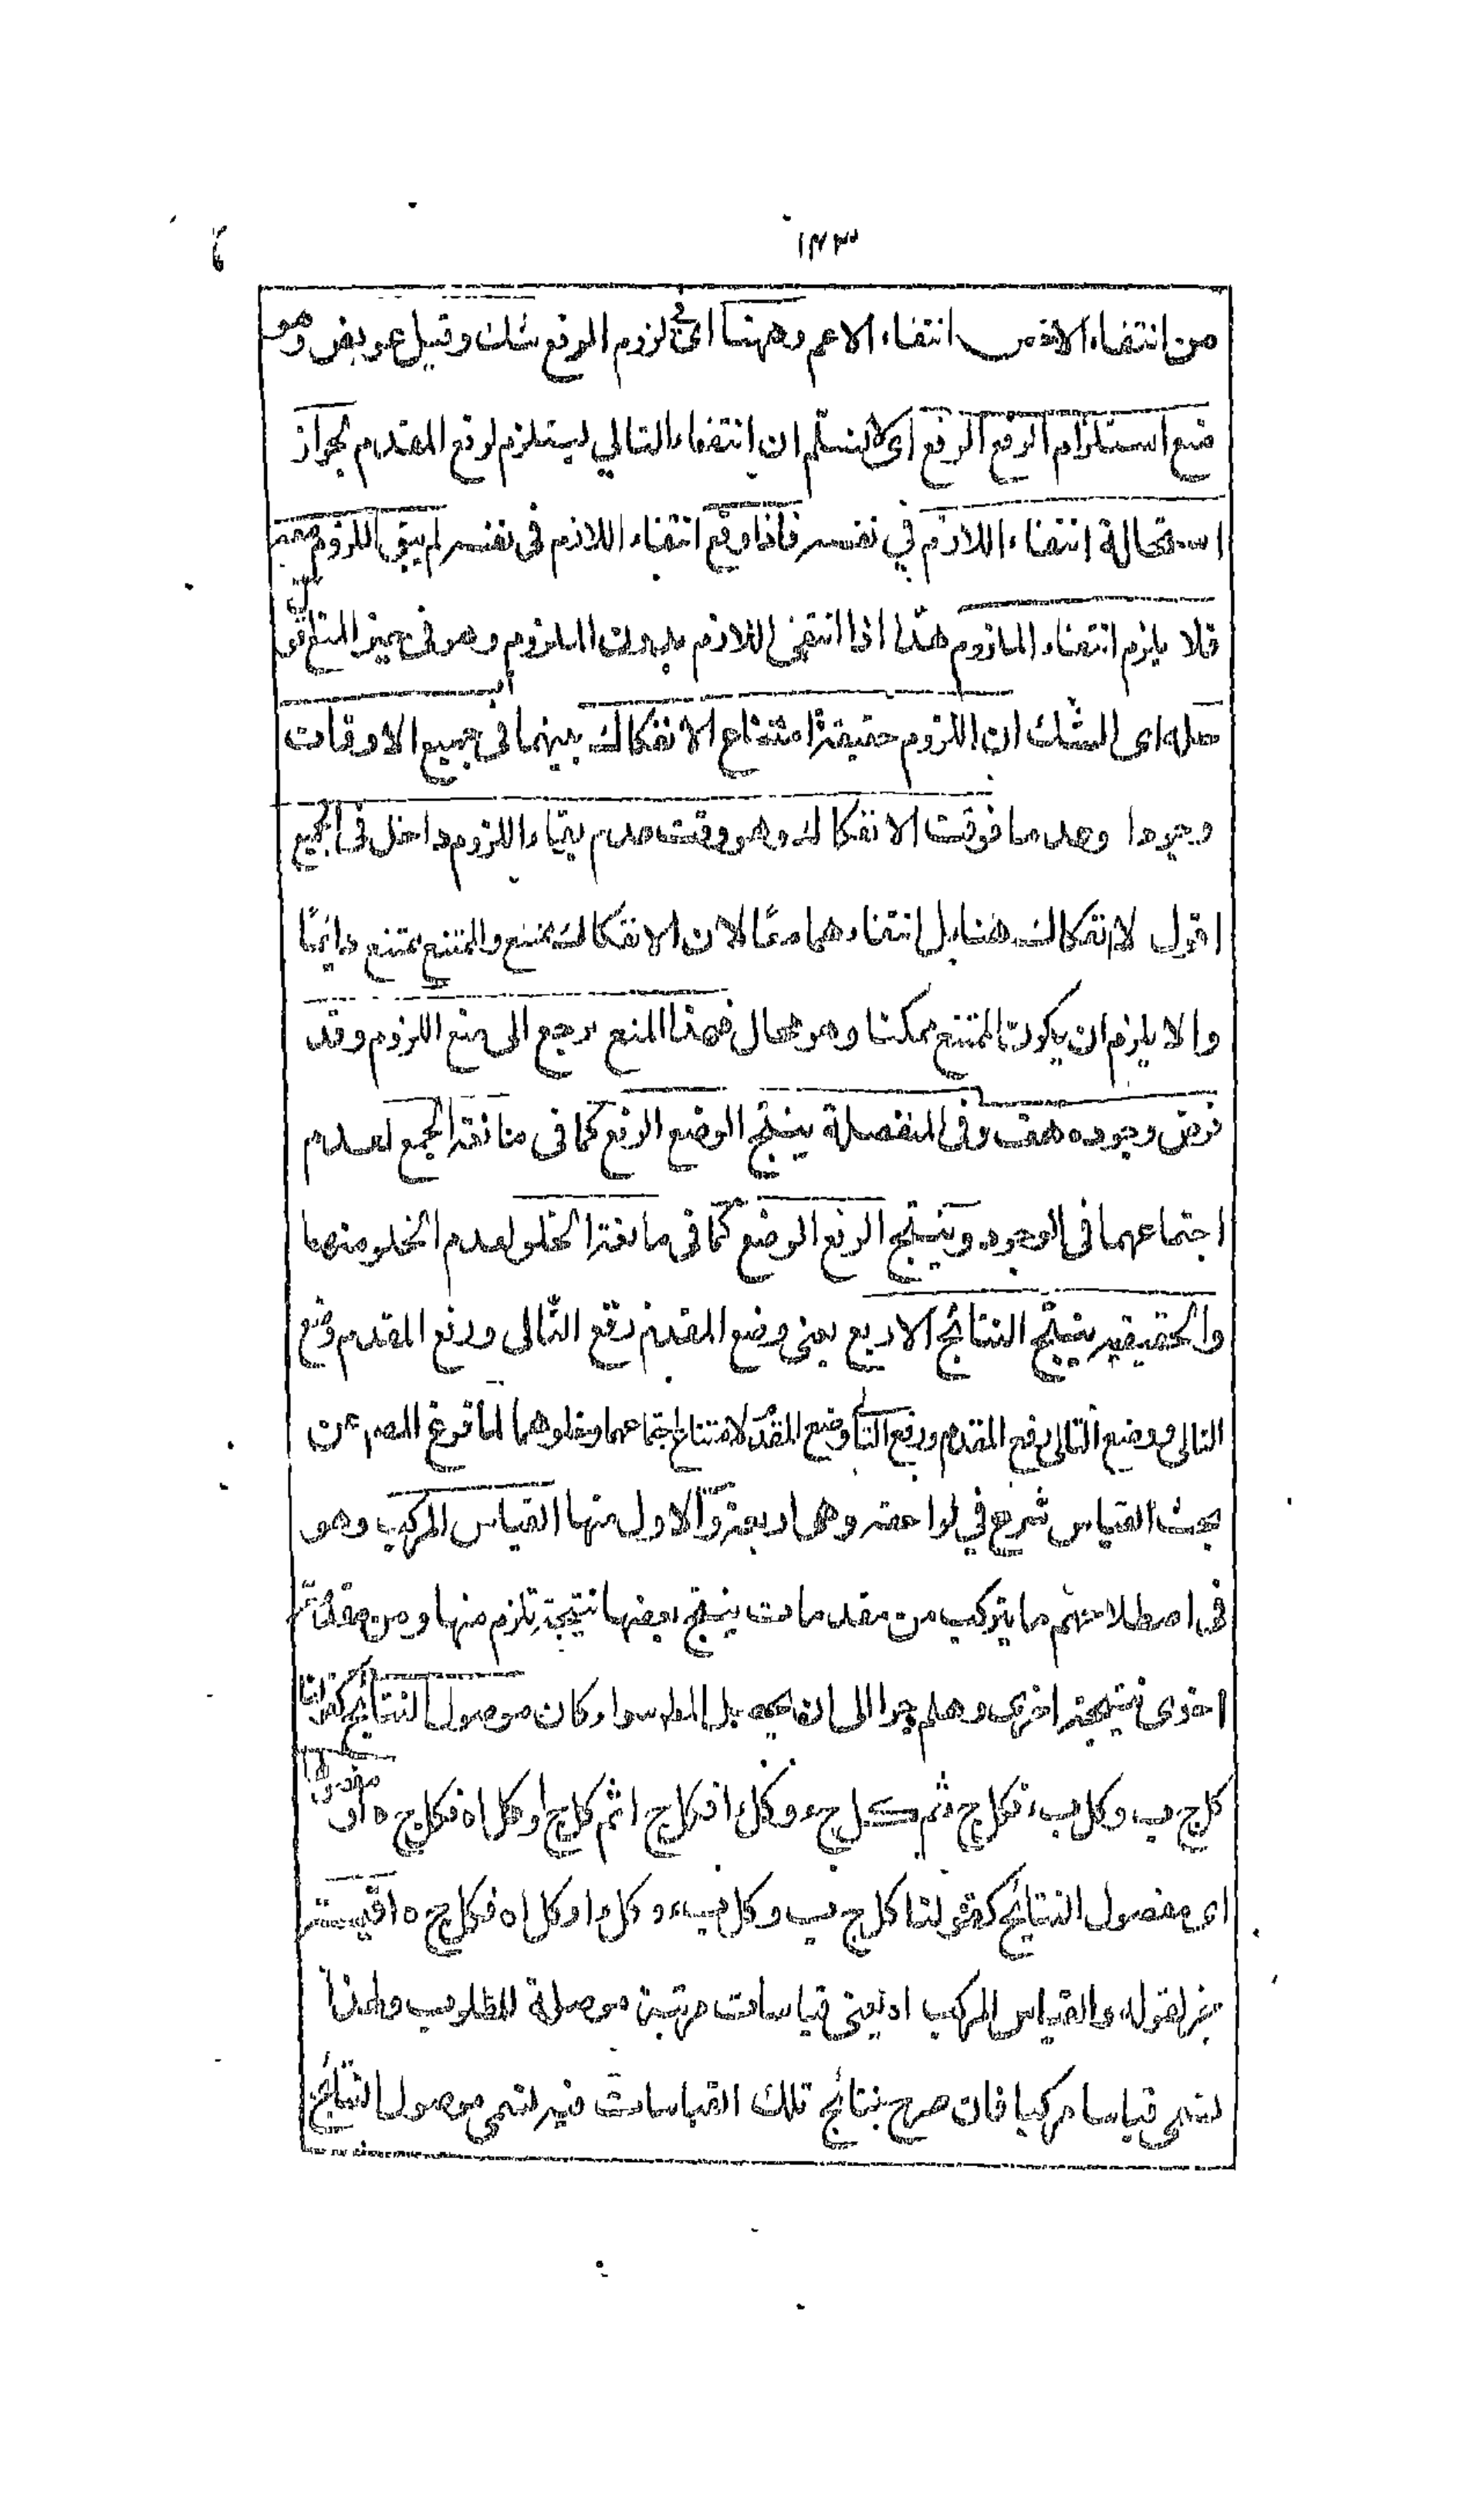 ١٢٣
من انتفاء الاخص انتفاء الاعم وههنا اى فى لزوم الرفع شك وقيل عويض وهو
منع استلزام الرفع الرفع اى لا نسلم ان انتفاء التالي يستلزم لرفع المقدم لجواز
استحالة انتفاء اللازم في نفسه فاذا وقع انتفاء اللازم فى نفسه لم يبق اللزوم معه
فلا يلزم انتفاء الملزوم هذا اذا انتفى اللازم بدون الملزوم وهو فى حيز المنع
حله اى الشك ان اللزوم حقيقة امتناع الانفكاك بينهما فى جميع الاوقات
وجودا وعدما فوقت الانفكاك وهو وقت عدم بقاء اللزوم داخل فى الجميع
اقول لا انفكاك هنا بل انتفاءهما معًا لان الانفكاك ممتنع والممتنع ممتنع دايمًا
والا يلزم ان يكون الممتنع ممكنا وهو محال فهذا المنع يرجع الى منع اللزوم وقد
فرض وجوده هف وفى المنفصلة ينتج الوضع الرفع كما فى مانعة الجمع لعدم
اجتماعهما فى الوجود وينتج الرفع الوضع كما فى مانعة الخلو لعدم الخلو منهما
والحقيقية ينتج النتائج الاربع يعنى وضع المقدم رفع التالى ورفع المقدم وضع
التالى ووضع التالى رفع المقدم ورفع التا وضع المقدم لامتناع اجتماعهما وخلوهما لما فرغ المصم عن
بحث القياس شرع في لواحقه وهى اربعة والاول منها القياس المركب وهو
فى اصطلاحهم ما يتركب من مقدمات ينتج بعضها نتيجة تلزم منها ومن مقدمة
اخرى نتيجة اخرى وهلم جرا الى ان يحصل المط سواء كان موصول النتائج كقولنا
كل ج ب وكل ب ء فكل ج ء ثم كل ج ء وكل ء ا فكل ج ا ثم كل ج ا وكل ا ه فكل ج ه او مفصولها
اى مفصول النتائج كقولنا كل ج ب وكل ب ء وكل ء ا وكل ا ه فكل ج ه اقيسة
خبر لقوله والقياس المركب اى يعنى قياسات مرتبة موصلة للمطلوب ولهذا
يسمى قياسا مركبا فان صرح بنتائج تلك القياسات فيه تسمى موصول النتائج